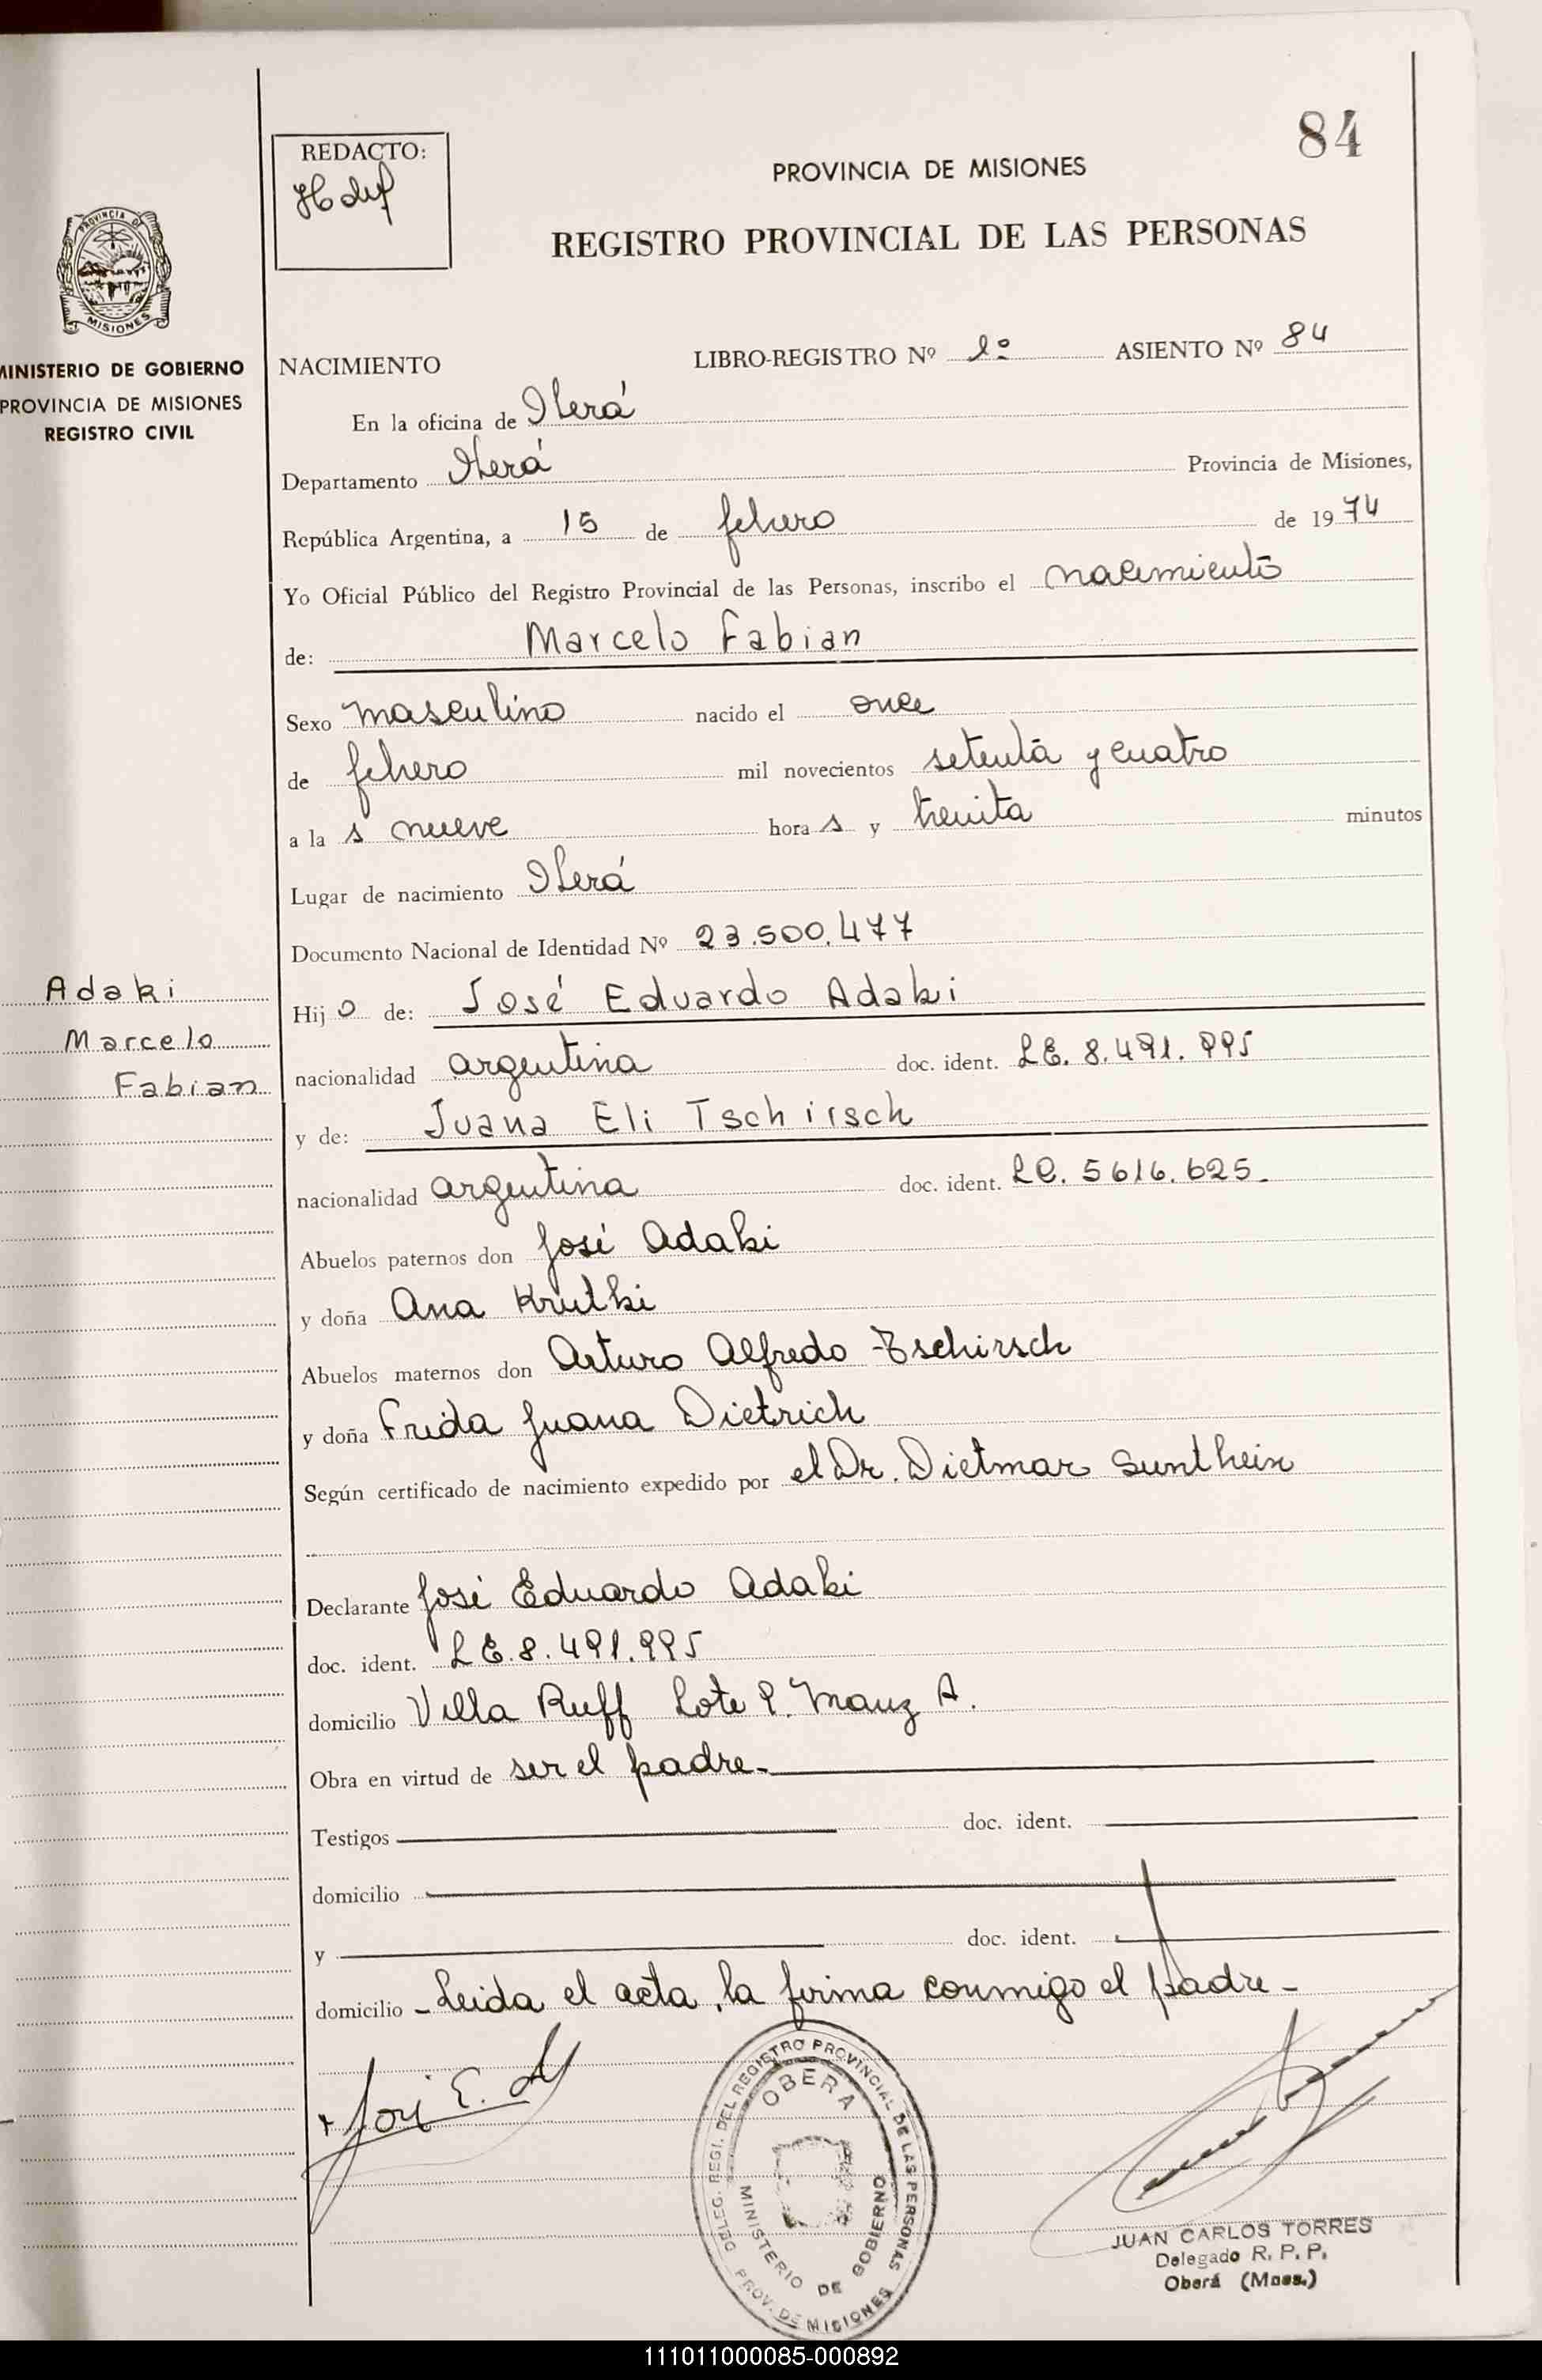 84
REDACTO:
PROVINCIA DE MISIONES
REGISTRO PROVINCIAL DE LAS PERSONAS
PROVINCIA DE
MISIONES
MINISTERIO DE GOBIERNO
PROVINCIA DE MISIONES
REGISTRO CIVIL
NACIMIENTO LIBRO-REGISTRO Nº 1º ASIENTO Nº 84
En la oficina de Oberá
Departamento Oberá Provincia de Misiones,
República Argentina, a 15 de febrero de 1974
Yo Oficial Público del Registro Provincial de las Personas, inscribo el nacimiento
de: Marcelo Fabian
Sexo masculino nacido el once
de febrero mil novecientos setenta y cuatro
a la s nueve hora s y treinta minutos
Lugar de nacimiento Oberá
Documento Nacional de Identidad Nº 23.500.477
Adaki
Marcelo
Fabian
Hij o de: José Eduardo Adaki
nacionalidad argentina doc. ident. LE. 8.491.995
y de: Juana Eli Tschirsch
nacionalidad argentina doc. ident. LC. 5616.625.
Abuelos paternos don José Adaki
y doña Ana Krutki
Abuelos maternos don Arturo Alfredo Tschirsch
y doña Frida Juana Dietrich
Según certificado de nacimiento expedido por el Dr. Dietmar
Declarante José Eduardo Adaki
doc. ident. LE.8.491.995
domicilio Villa Ruff Lote 9. Manz A.
Obra en virtud de ser el padre-
Testigos doc. ident.
domicilio
y doc. ident.
domicilio - Leida el acta, la firma conmigo el padre-
José E.
DELEG. REGI. DEL REGISTRO PROVINCIAL DE LAS PERSONAS
OBERA
MINISTERIO DE GOBIERNO
PROV. DE MISIONES
JUAN CARLOS TORRES
Delegado R. P. P.
Oberá (Mnes.)
111011000085-000892